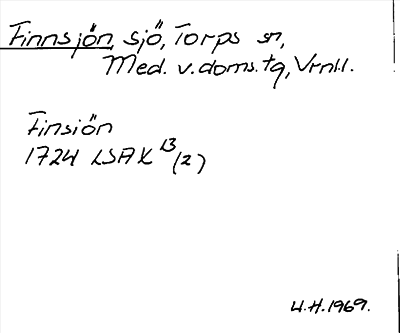 Finnsjön, sjö, Torps sn,
Med. v. doms. tg, Vrml.
Finsiön
1724 LSAK 13 (2)
U.H. 1969.